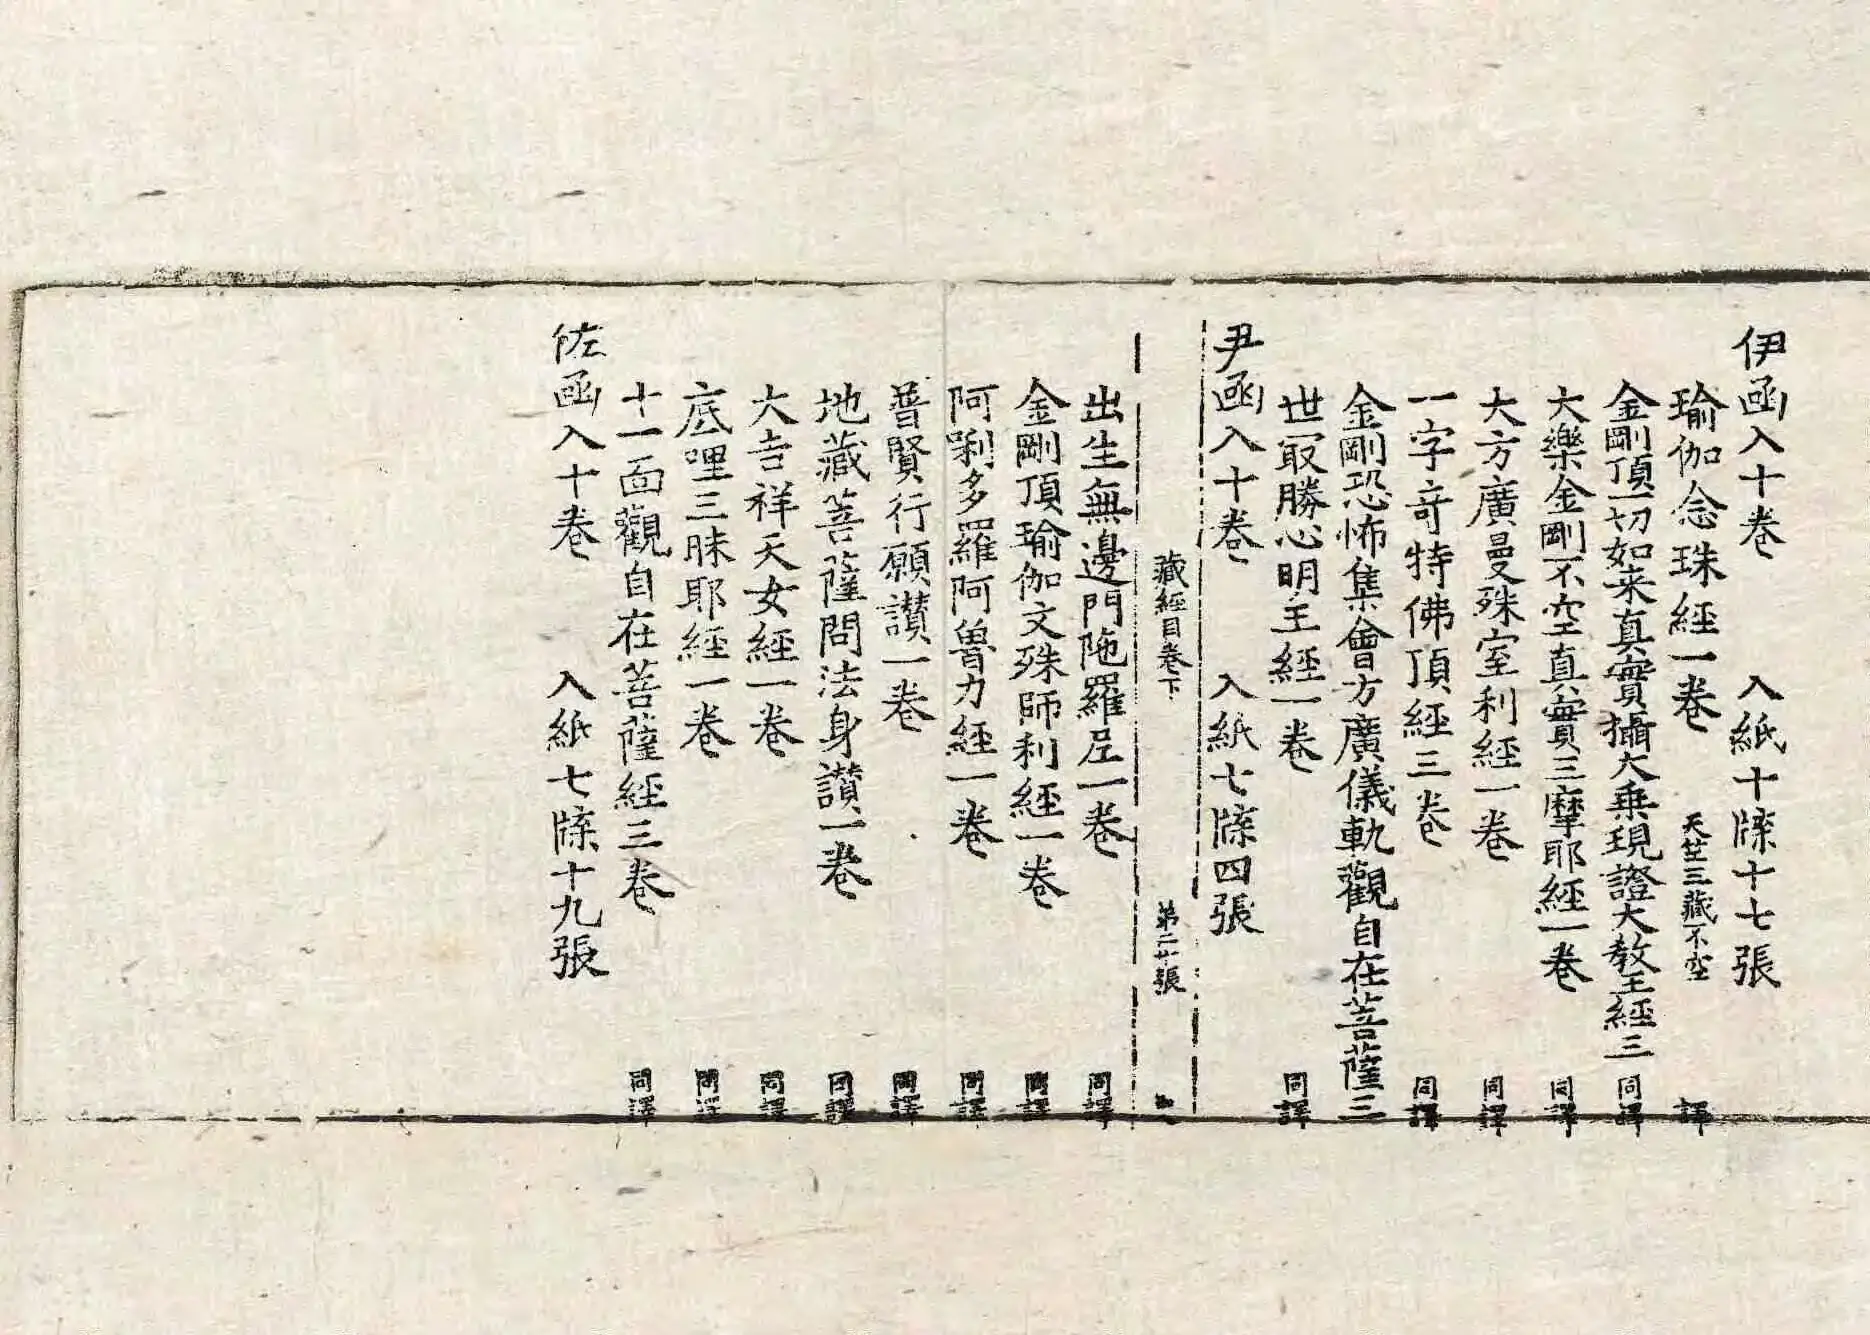 伊函入十卷 入紙十牒十七張
瑜伽念珠經一卷 天竺三藏不空 譯
金剛頂一切如來真實攝大乗現證大教王經三 同譯
大樂金剛不空真實三摩耶經一卷 同譯
大方廣曼殊室利經一卷 同譯
一字竒特佛頂經三卷 同譯
金剛恐怖集會方廣儀軌觀自在菩薩三
世㝡勝心明王經一卷 同譯
尹函入十卷 入紙七牒四張
藏經目卷下 第二十張
出生無邊門陁羅尼一卷 同譯
金剛頂瑜伽文殊師利經一卷 同譯
阿唎多羅阿魯力經一卷 同譯
普賢行願讃一卷 同譯
地藏菩薩問法身讃一卷 同譯
大吉祥天女經一卷 同譯
底哩三昧耶經一卷 同譯
十一面觀自在菩薩經三卷 同譯
佐函入十卷 入紙七牒十九張